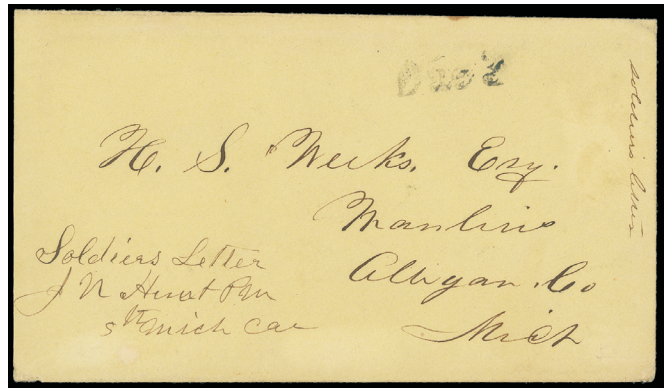 Due 3
soldiers letter
H. S. Weeks. Esq.
Manlius
Allegan. Co
Mich
Soldiers Letter
J N Hurst PM
5th Mich Cav